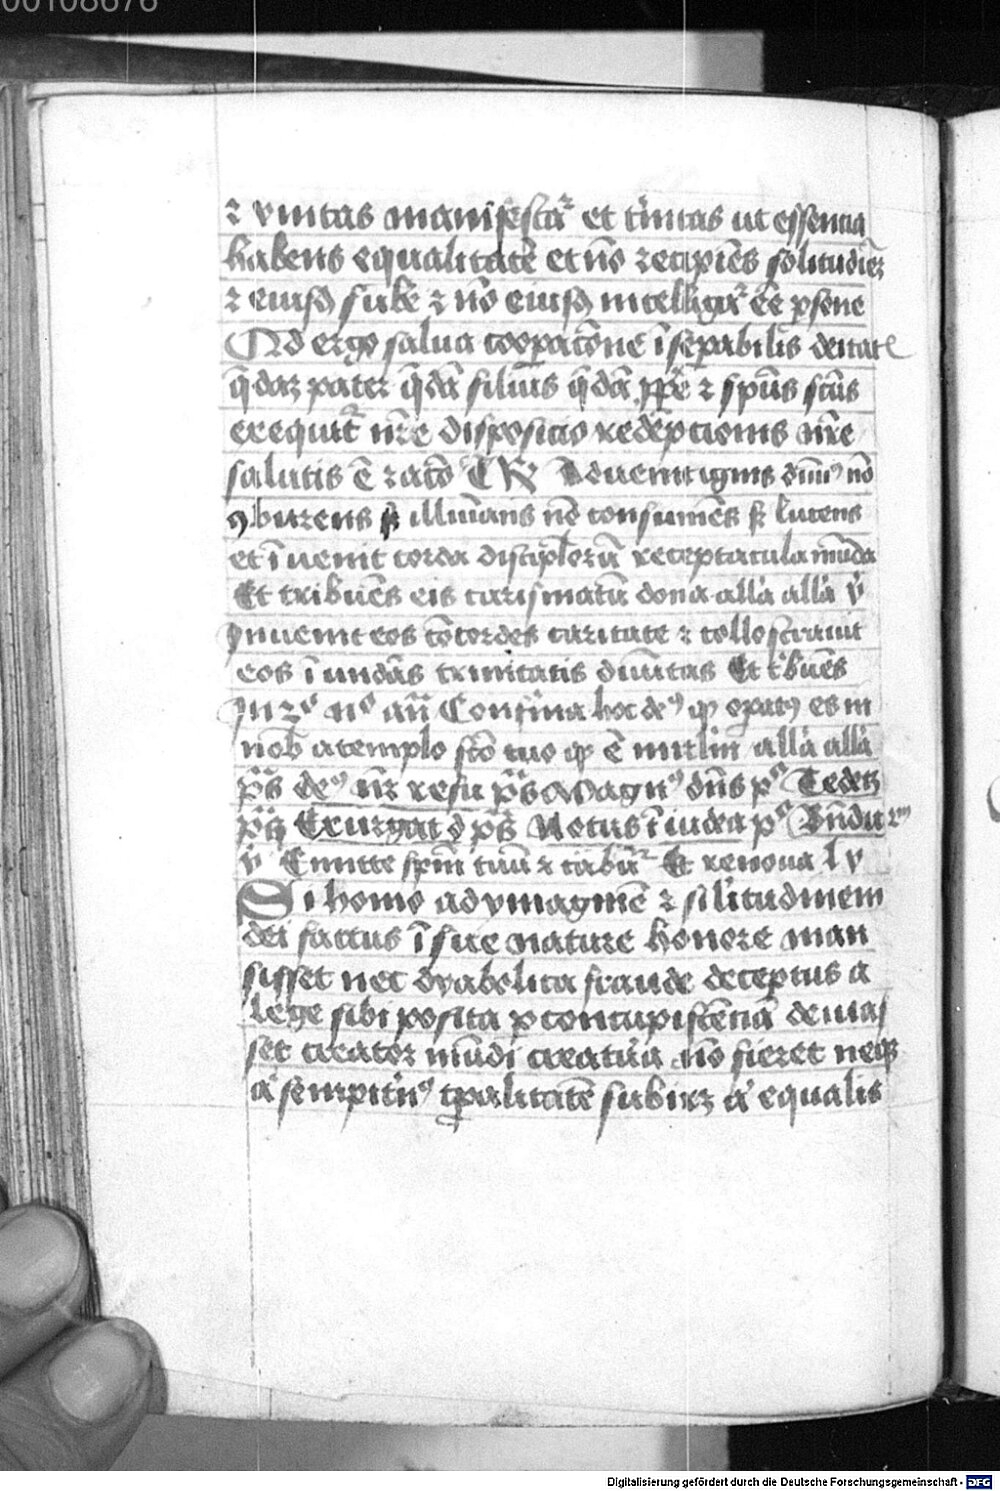 00108676
⁊ vnitas manifestat᷑ et t'nitas ut essencia
habens equalitatē et nō recipiēs solitudīez
⁊ eiusd̄ sube ⁊ nō eiusd̄ intelligit᷑ eē psone
Ad ergo salua cooꝑacōne īseꝑabilis deitate
q̄daz pater q̄dā filius q̄dā ꝓpe ⁊ spūs scūs
exequit᷑ nr̄e disposicio redēpcionis nr̄e
salutis ē racō R Advenit ignis diuin⁹ nō
ꝯburens s; illuīans nō consumēs s; lucens
et īuenit corda discipl'orū receptacula mūda
Et tribuēs eis carismatū dona alla alla v̓
Inuenit eos cōcordes caritate ⁊ collustrauit
eos īundās trinitatis diuītas Et t'buēs
In 2⁰ n⁰ an̄ Confirma hoc de⁹ qd̄ oꝑat⁹ es in
nob̄ a templo scō tuo qd̄ ē in irl'm alla alla
ps̄ de⁹ nr̄ refu ps̄ Magn⁹ dn̄s ps̄ Te decz
ps̄ Exurgat d ps̄ Notus ī iudea ps̄ Bn̄dic
v̓ Emitte spm̄ tuū ⁊ c'abūt᷑ Et renoua l v
Si homo ad ymaginē ⁊ sil'itudinem
dei factus ī sue nature honore man
sisset nec dyabolica fraude deceptus a
lege sibi posita ꝑ concupiscēciā deuias
set creator mūdi creatura nō fieret neqꝫ
aͭ sempit'n⁹ tꝑalitatē subirꝫ aͭ equalis
Digitalisierung gefördert durch die Deutsche Forschungsgemeinschaft - DFG